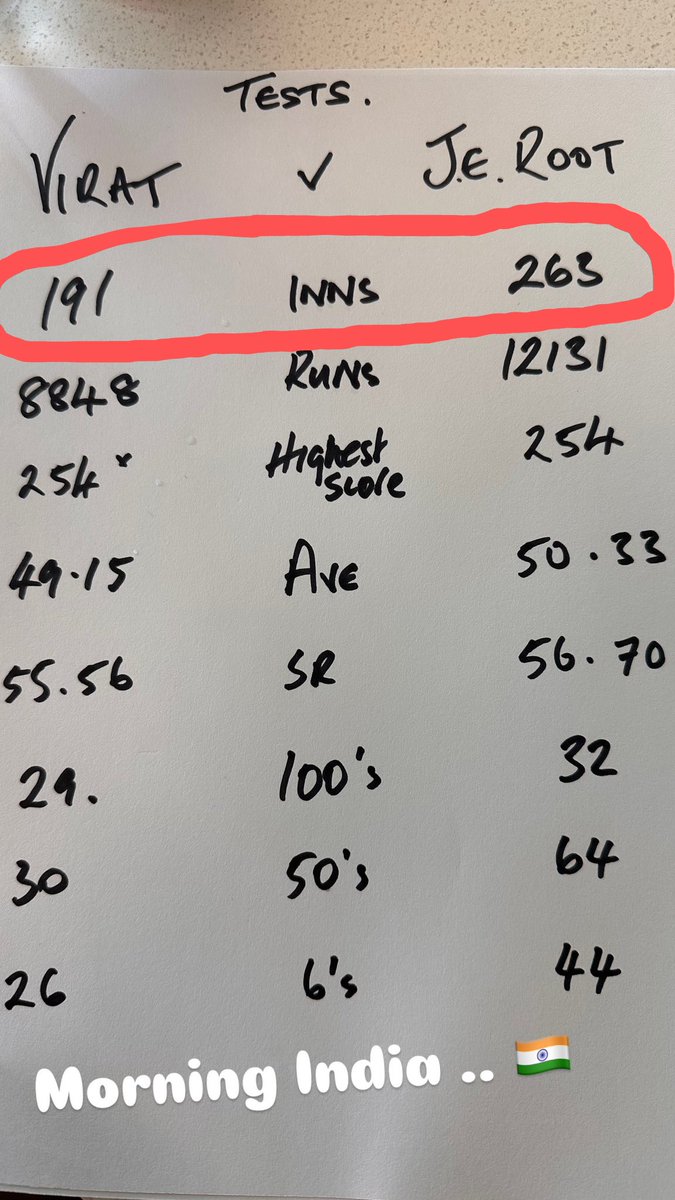 TESTS.
VIRAT ✓ J.E. ROOT
191 INNS 263
8848 RUNS 12131
254* Highest score 254
49.15 AVE 50.33
55.56 SR 56.70
29. 100's 32
30 50's 64
26 6's 44
Morning India .. 🇮🇳